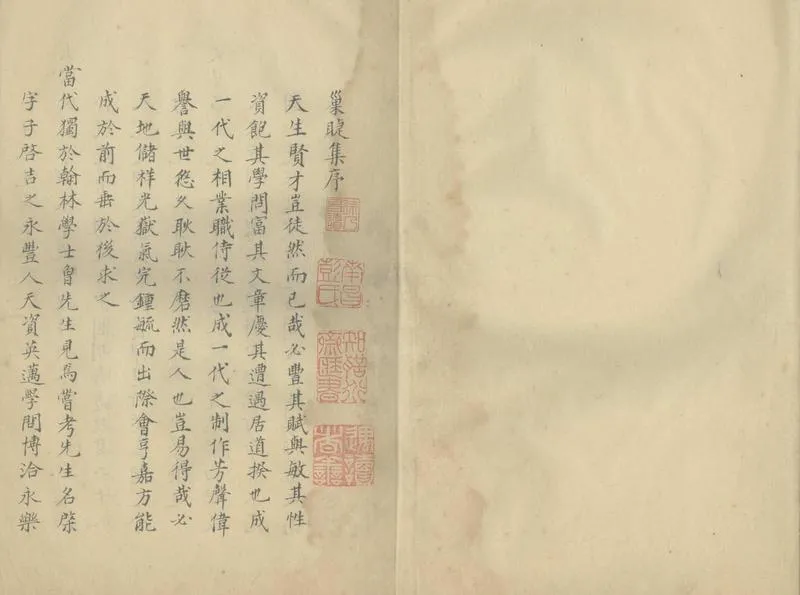 巢睫集序
南昌彭氏
知聖道齋藏書
遇讀者善
天生賢才豈徒然而已哉必豐其賦與敏其性
資飽其學問富其文章慶其遭遇居道揆也成
一代之相業職侍從也成一代之制作芳聲偉
譽與世悠久耿耿不磨然是人也豈易得哉必
天地儲祥光嶽氣完鍾毓而出際會亨嘉方能
成於前而垂於後求之
當代獨於翰林學士曾先生見焉嘗考先生名棨
字子啓吉之永豐人天資英邁學問博洽永樂